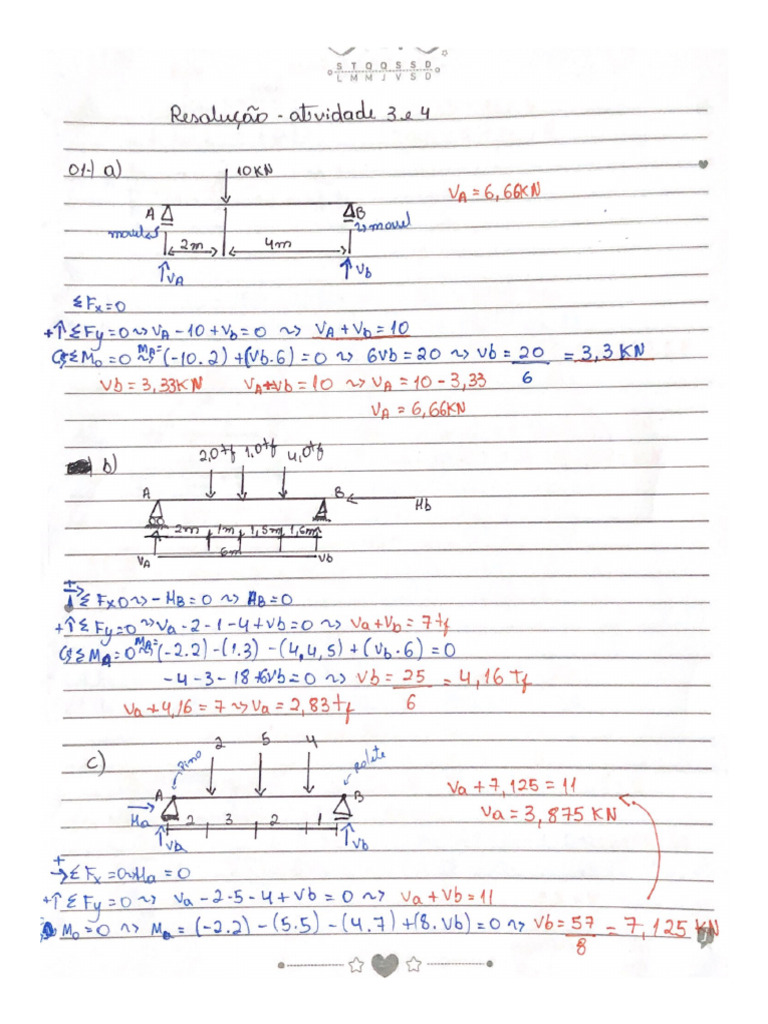 S T Q Q S S D
L M M J V S D
Resolução - atividade 3 e 4
01-) a)
10KN
VA = 6,66KN
A
B
movel
movel
2m
4m
VA
Vb
ΣFx=0
+↑ ΣFy=0 ~> VA - 10 + Vb = 0 ~> VA + Vb = 10
ΣMo=0 ~> MA= (-10.2) + (Vb.6) = 0 ~> 6Vb = 20 ~> Vb = 20/6 = 3,3 KN
Vb = 3,33KN VA+Vb = 10 ~> VA = 10 - 3,33
VA = 6,66KN
b)
2,0tf 1,0tf 4,0tf
A
B
Hb
2m 1m 1,5m 1,5m
6m
VA
Vb
+→ ΣFx0 ~> - HB = 0 ~> HB = 0
+↑ ΣFy=0 ~> Va - 2 - 1 - 4 + Vb = 0 ~> Va + Vb = 7tf
ΣMA=0 ~> MA= (-2.2) - (1.3) - (4.4,5) + (Vb.6) = 0
-4 - 3 - 18 + 6Vb = 0 ~> Vb = 25/6 = 4,16 tf
Va + 4,16 = 7 ~> Va = 2,83tf
c)
Pino
2 5 4
rolete
A
B
Ha
2 3 2 1
Va
Vb
Va + 7,125 = 11
Va = 3,875 KN
+→ ΣFx = 0 ~> Ha = 0
+↑ ΣFy = 0 ~> Va - 2 - 5 - 4 + Vb = 0 ~> Va + Vb = 11
Mo = 0 ~> Ma = (-2.2) - (5.5) - (4.7) + (8.Vb) = 0 ~> Vb = 57/8 = 7,125 KN